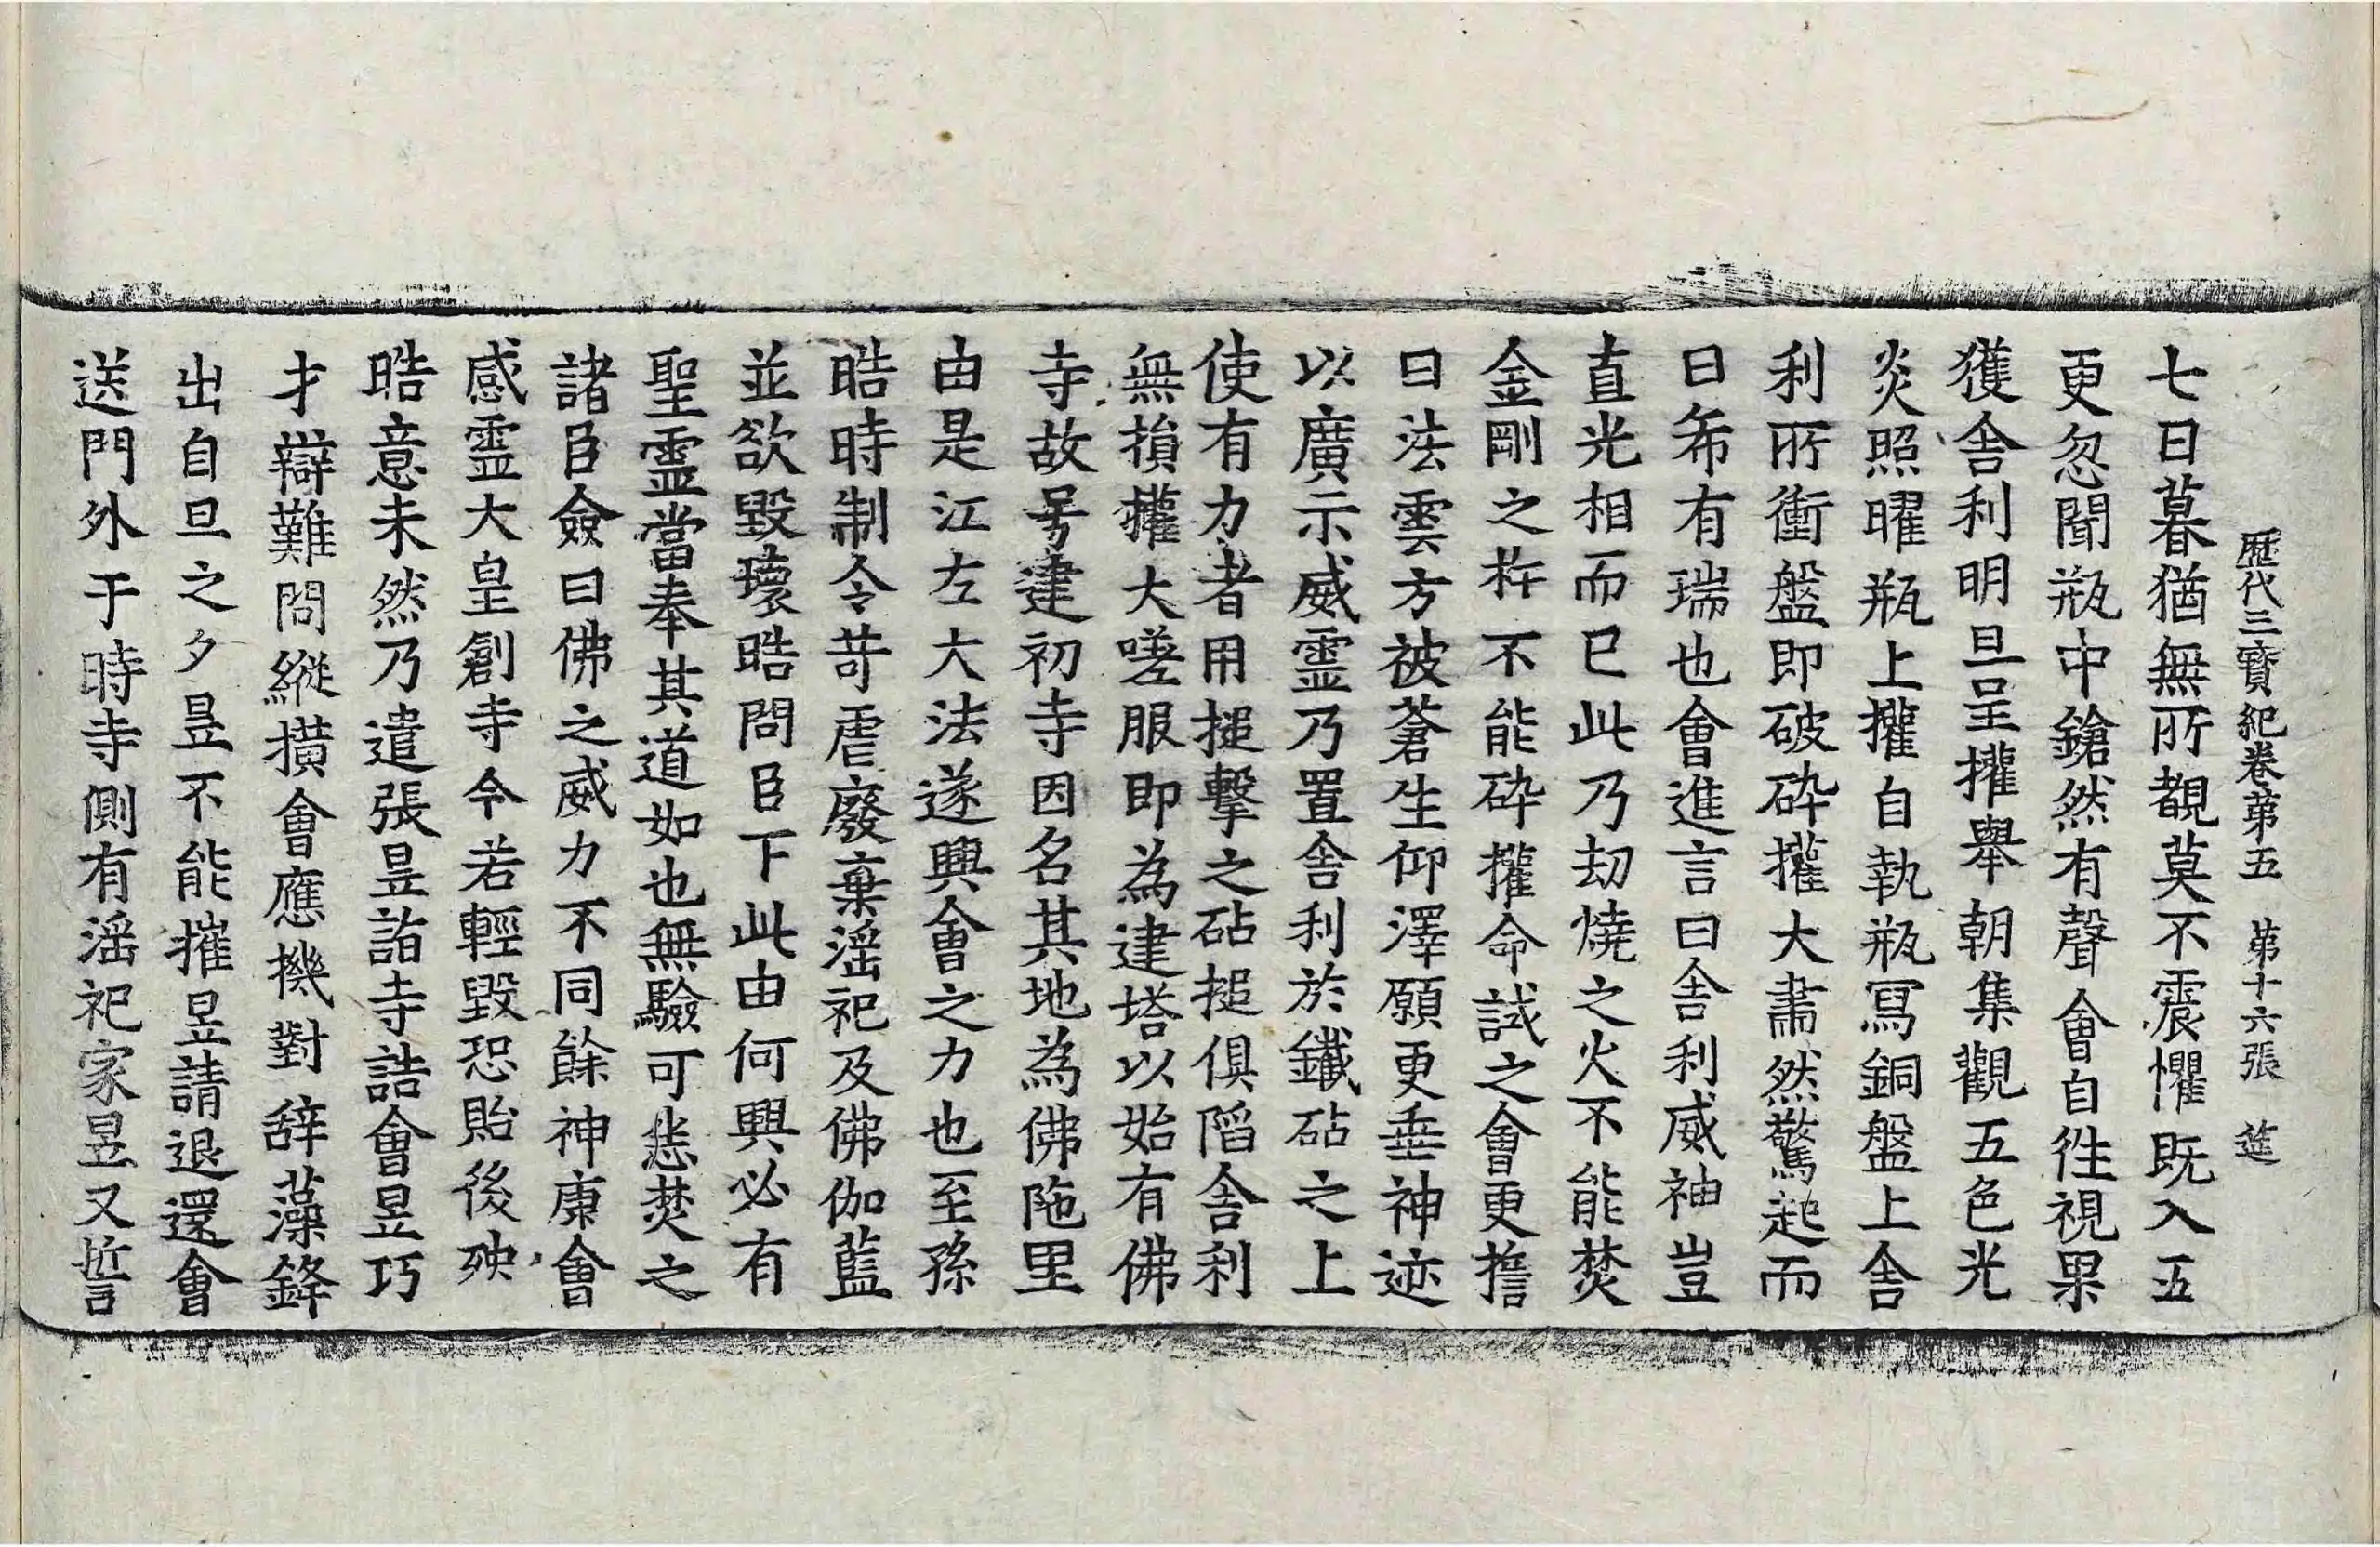 歷代三寶紀卷第五　第十六張　筵
七日暮猶無所覩莫不震懼既入五
更忽聞瓶中鎗然有聲會自往視果
獲舍利明旦呈權舉朝集觀五色光
炎照曜瓶上權自執瓶寫銅盤上舍
利所衝盤即破碎權大肅然驚起而
曰希有瑞也會進言曰舍利威神豈
直光相而已此乃劫燒之火不能焚
金剛之杵不能碎權命試之會更擔
曰法雲方被蒼生仰澤願更垂神迹
以廣示威靈乃置舍利於鐵砧之上
使有力者用搥擊之砧搥俱陷舍利
無損權大嗟服即為建塔以始有佛
寺故号建初寺因名其地為佛陁里
由是江左大法遂興會之力也至孫
晧時制令苛虐廢棄滛祀及佛伽藍
並欲毀壞晧問臣下此由何興必有
聖靈當奉其道如也無驗可悉焚之
諸臣僉曰佛之威力不同餘神康會
感靈大皇創寺今若輕毀恐貽後殃
晧意未然乃遣張昱詣寺詰會昱巧
才辯難問縱撗會應機對辞藻鋒
出自旦之夕昱不能摧昱請退還會
送門外于時寺側有滛祀家昱又誓